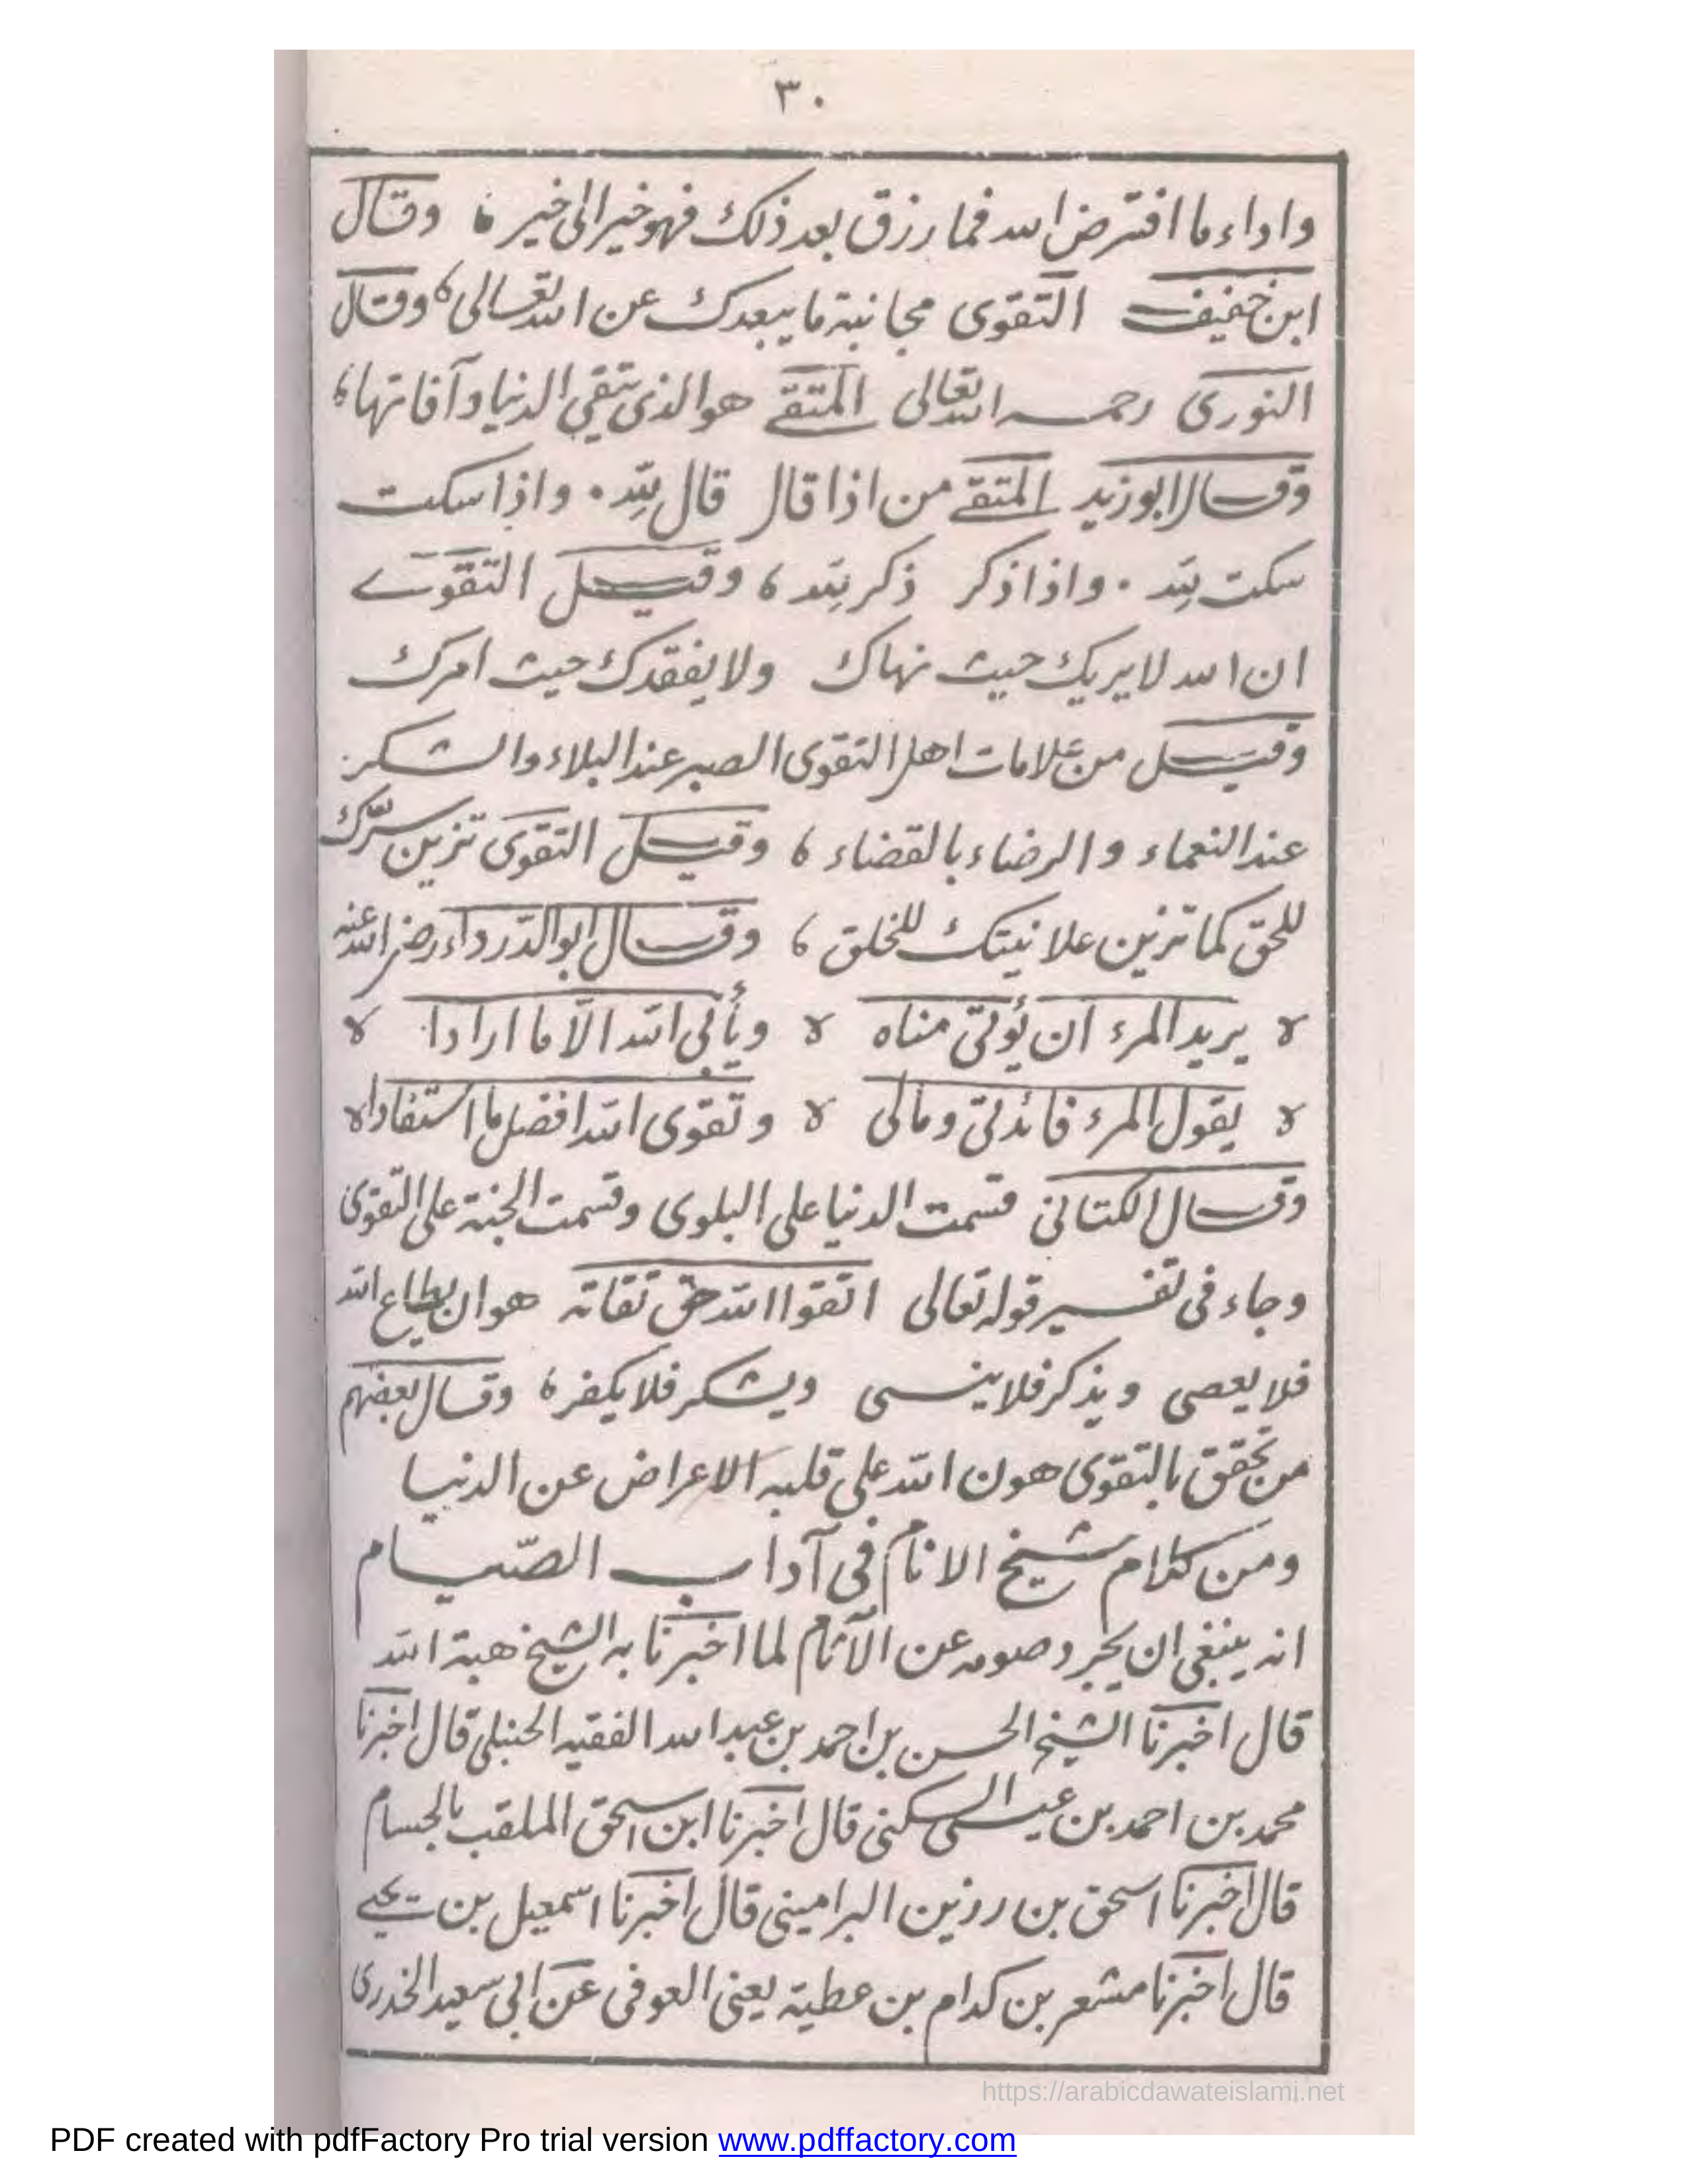 ٣٠
واداء ما افترض الله فما رزق بعد ذلك فهو خير الى خير ، وقال
ابن خفيف التقوى مجانبة ما يبعدك عن الله تعالى ، وقال
النورى رحمه الله تعالى المتقے هو الذى يتقي الدنيا وآفاتها ،
وقال ابو زيد المتقے من اذا قال قال لله . واذا سكت
سكت لله . واذا ذكر ذكر لله ، وقيل التقوے
ان الله لا يريك حيث نهاك ولا يفقدك حيث امرك
وقيل من علامات اهل التقوى الصبر عند البلاء والشكر
عند النعماء والرضاء بالقضاء ، وقيل التقوى تزين سرّك
للحق كما تزين علانيتك للخلق ، وقال ابو الدّرداء رضى الله عنه
يريد المرء ان يُؤتى مناه ويأبى الله الّا ما ارادا
يقول المرء فائدتى ومالى وتقوى الله افضل ما استفادا
وقال الكتانى قسمت الدنيا على البلوى وقسمت الجنة على التقوى
وجاء فى تفسير قوله تعالى اتقوا الله حق تقاته هو ان يطاع الله
فلا يعصى ويذكر فلا ينسى ويشكر فلا يكفر ، وقال بعضهم
من تحقق بالتقوى هون الله على قلبه الاعراض عن الدنيا
ومن كلام شيخ الانام فى آداب الصّيام
انه ينبغى ان يجرد صومه عن الآثام لما اخبرنا به الشيخ هبة الله
قال اخبرنا الشيخ الحسن بن احمد بن عبد الله الفقيه الحنبلى قال اخبرنا
محمد بن احمد بن عيسى السكنى قال اخبرنا ابن اسحق الملقب بالجسام
قال اخبرنا اسحق بن رزين البرامينى قال اخبرنا اسمعيل بن يحيے
قال اخبرنا مشعر بن كدام بن عطية يعنى العوفى عن ابى سعيد الخدرى
https://arabicdawateislami.net
PDF created with pdfFactory Pro trial version www.pdffactory.com